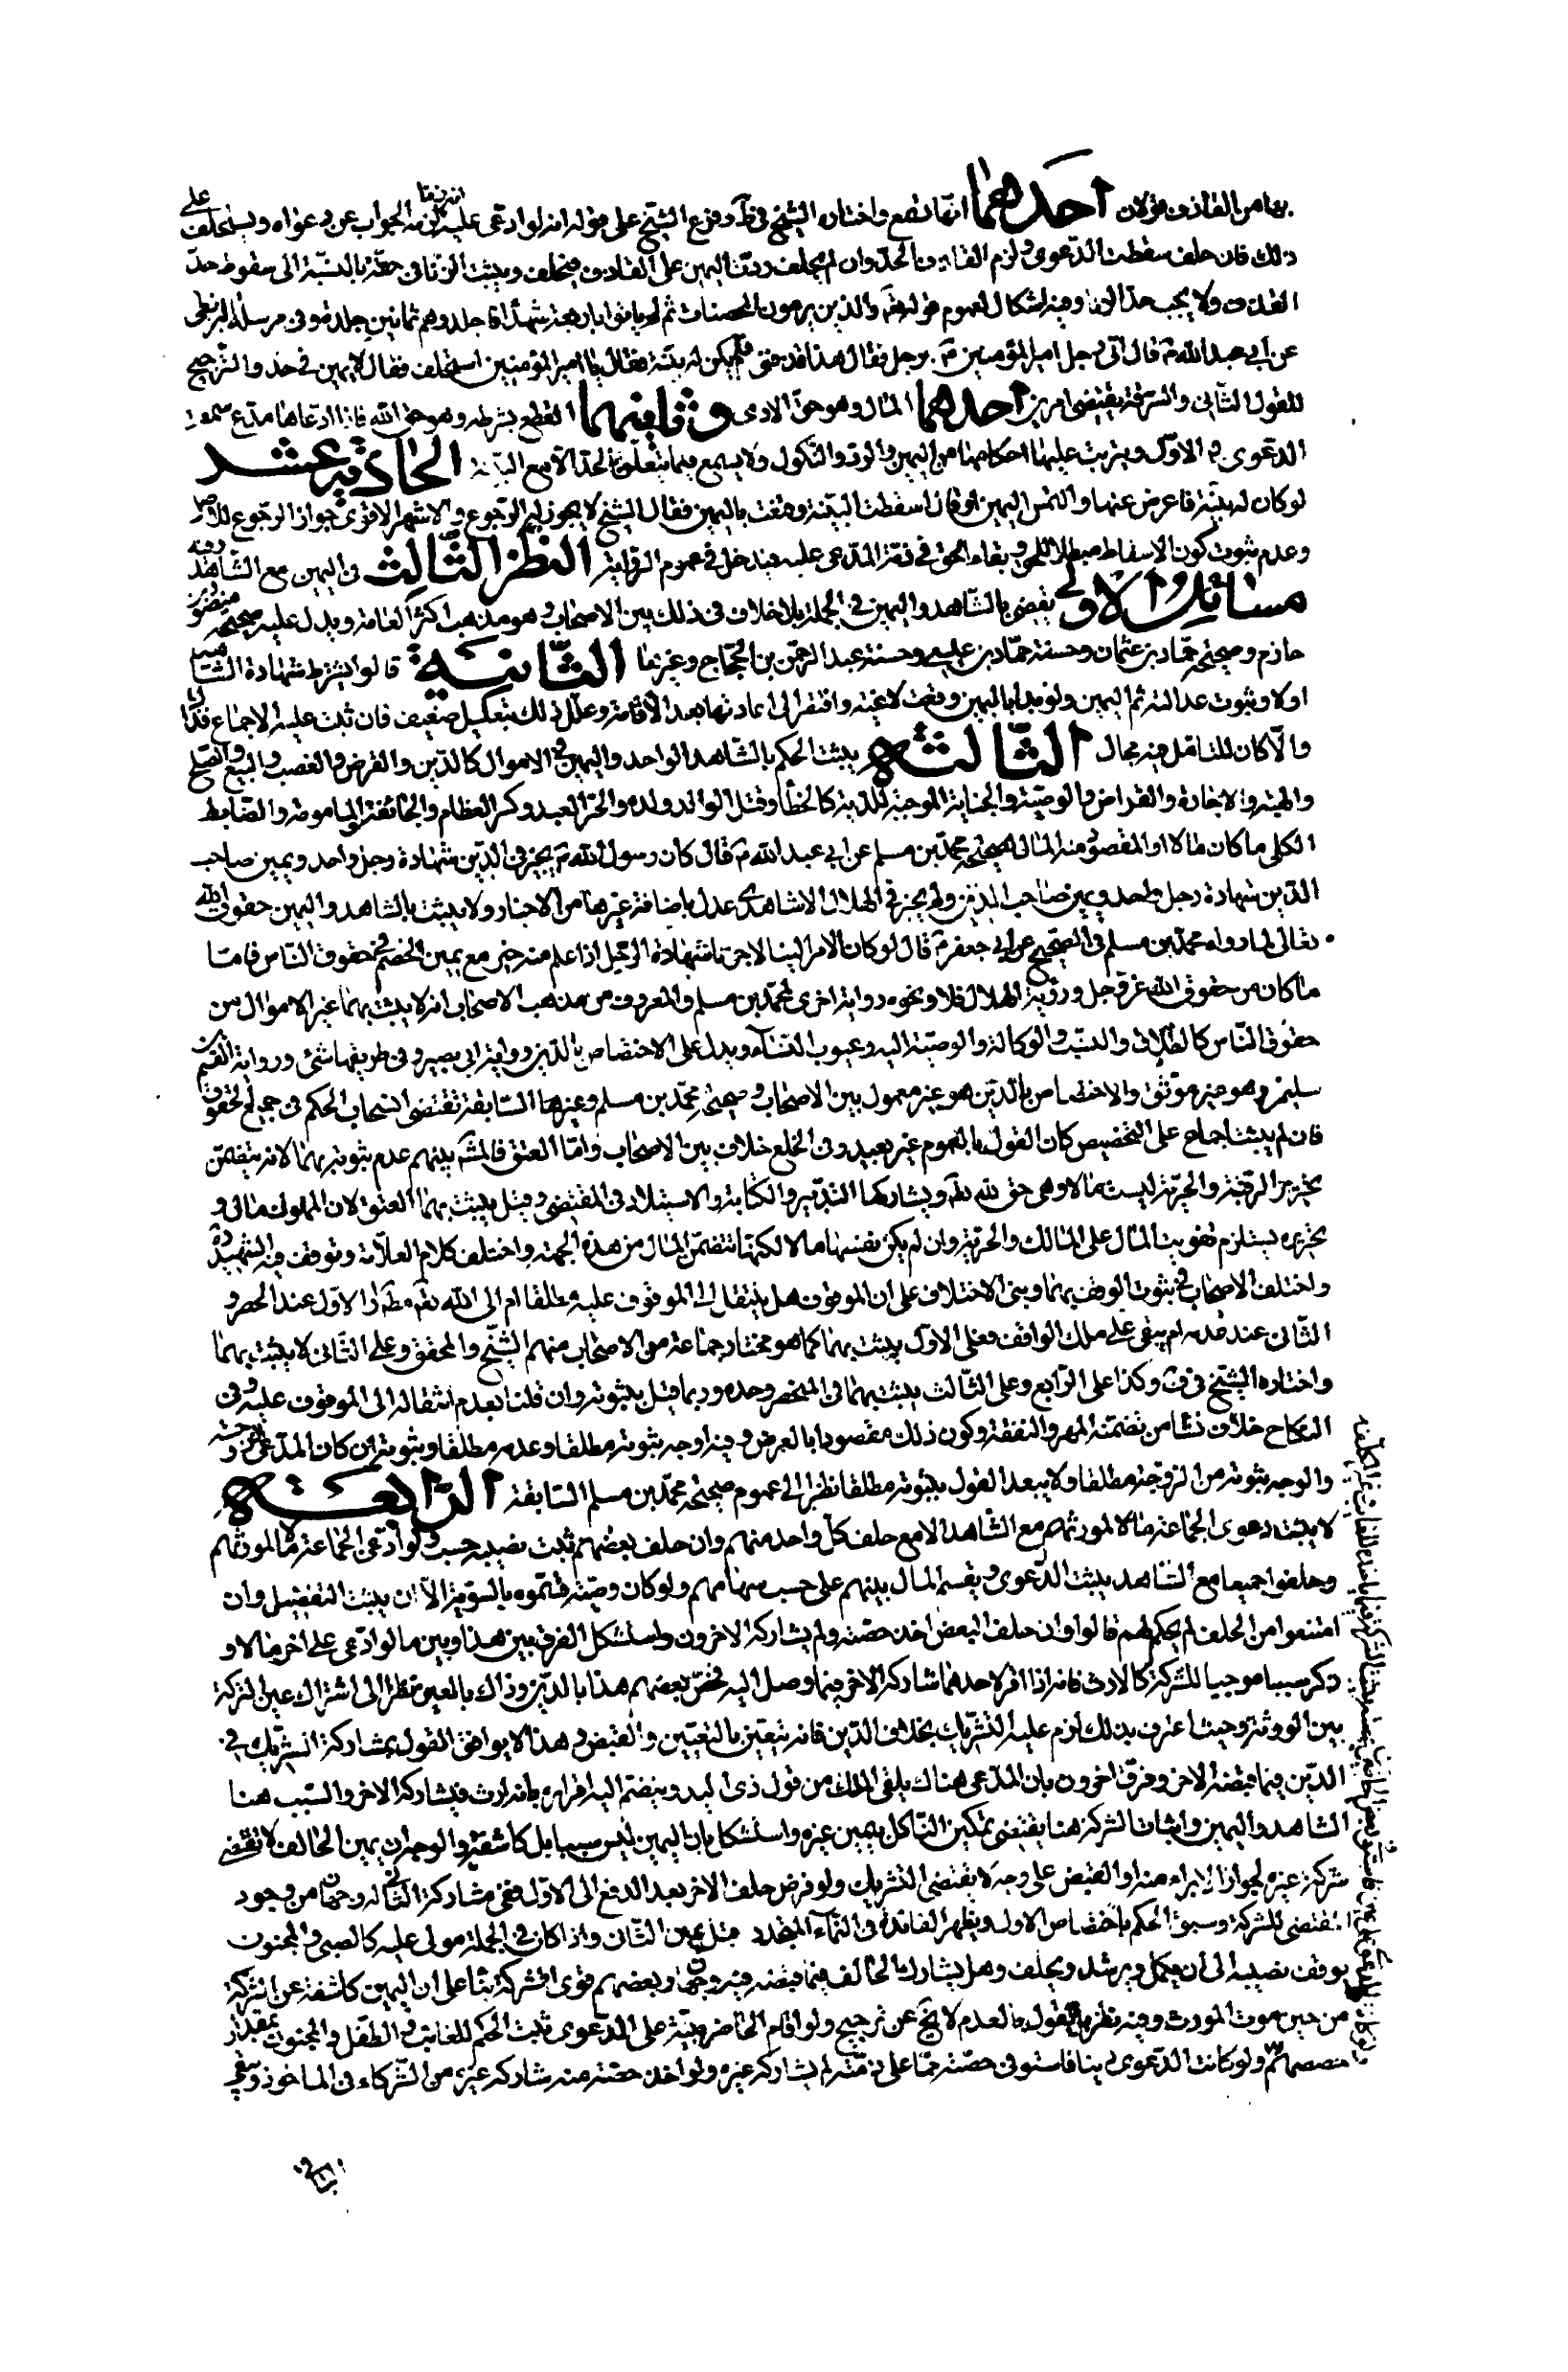 بها من القاذف قولان احدهما انها تسمع واختاره الشيخ في ط وفرع الشيخ على قوله انه لو ادعى عليه انه زنا لزمه الجواب عن دعواه ويستحلف على
ذلك فان حلف سقطت الدعوى ولزم القاذف الحد وان لم يحلف ردت اليمين على القاذف فيحلف ويثبت الزنا في حقه بالنسبة الى سقوط حد
القذف ولا يجب حد الزنا وفيه اشكال لعموم قوله تعالى والذين يرمون المحصنات ثم لم ياتوا باربعة شهداء فاجلدوهم ثمانين جلدة وفي مرسلة البزنطي
عن ابي عبد الله ع قال اتى رجل امير المؤمنين ع برجل فقال هذا قذفني فلم يكن له بينة فقال يا امير المؤمنين استحلفه فقال لا يمين في حد والترجيح
للقول الثاني والسرقة يقتضى امرين احدهما المال وهو حق الادمى وثانيهما القطع بشرطه وهو حق الله فاذا ادعاها مدع سمعت
الدعوى في الاول ويترتب عليها احكامها من اليمين والرد والنكول ولا يسمع فيما يتعلق بالحد الا مع البينة الحادية عشر
لو كان له بينة فاعرض عنها والتمس اليمين او قال اسقطت البينة وقنعت باليمين فقال الشيخ لا يجوز له الرجوع والاشهر الاقوى جواز الرجوع للاصل
وعدم ثبوت كون الاسقاط مبطلا للحق وبقاء الحق في ذمة المدعى عليه فيدخل في عموم الروايات النظر الثالث في اليمين مع الشاهد وفيه
مسائل الاولى يقضى بالشاهد واليمين في الجملة بلا خلاف في ذلك بين الاصحاب وهو مذهب اكثر العامة ويدل عليه صحيحة منصور بن
حازم وصحيحة حماد بن عثمان وحسنة حماد بن عيسى وحسنة عبد الرحمن بن الحجاج وغيرها الثانية قالوا يشترط شهادة الشاهد
اولا وثبوت عدالته ثم اليمين ولو بدا باليمين وقعت لاغية وافتقر الى اعادتها بعد الاقامة وعلل ذلك بتعليل ضعيف فان ثبت عليه الاجماع فذاك
والا كان للتامل فيه مجال الثالثة يثبت الحكم بالشاهد الواحد واليمين في الاموال كالدين والقرض والغصب والبيع والصلح
والهبة والاجارة والقراض والوصية والجناية الموجبة للدية كالخطأ وقتل الوالد ولده والحر العبد وكسر العظام والجائفة والمامومة والضابط
الكلي ما كان مالا او المقصود منه المال لصحيحة محمد بن مسلم عن ابي عبد الله ع قال كان رسول الله ص يجيز في الدين شهادة رجل واحد ويمين صاحب
الدين شهادة رجل واحد ويمين صاحب الدين ولم يجز في الهلال الا شاهدى عدل باضافة غيرها من الاخبار ولا يثبت بالشاهد واليمين حقوق الله
تعالى لما رواه محمد بن مسلم في الصحيح عن ابي جعفر ع قال لو كان الامر الينا لاجزنا شهادة الرجل اذا علم منه خير مع يمين الخصم في حقوق الناس فاما
ما كان من حقوق الله عز وجل ورؤية الهلال فلا ونحوه رواية اخرى لمحمد بن مسلم والمعروف من مذهب الاصحاب انه لا يثبت بهما غير الاموال من
حقوق الناس كالطلاق والنسب والوكالة والوصية اليه وعيوب النساء ويدل على الاختصاص بالدين رواية ابي بصير وفي طريقها شئ ورواية القسم بن
سليمن وهو خبر موثق والاختصاص بالدين هو غير معمول بين الاصحاب وصحيحة محمد بن مسلم وغيرها السابقة تقتضى انسحاب الحكم في جميع الحقوق
فان لم يثبت اجماع على التخصيص كان القول بالعموم غير بعيد وفى الخلع خلاف بين الاصحاب واما العتق فالمشهور بينهم عدم ثبوته بهما لانه يتضمن
تحرير الرقبة والحرية ليست مالا وهى حق لله تعالى ويشاركها التدبير والكتابة والاستيلاد في المقتضى وقيل يثبت بهما العتق لان المملوك مال و
تحريره يستلزم تفويت المال على المالك والحرية وان لم يكن نفسها مالا لكنها تتضمن المال من هذه الجهة واختلف كلام العلامة وتوقف فيه الشهيد ره
واختلف الاصحاب في ثبوت الوقف بهما وبنى الاختلاف على ان الموقوف هل ينتقل الى الموقوف عليه مطلقا ام الى الله تعالى مطلقا ام الاول عند الحصر و
الثاني عند عدمه ام يبقى على ملك الواقف فعلى الاول يثبت بهما كما هو مختار جماعة من الاصحاب منهم الشيخ والمحقق وعلى الثانى لا يثبت بهما
واختاره الشيخ في ف وكذا على الرابع وعلى الثالث يثبت بهما في المنحصر وحده وربما قيل بثبوته وان قلنا بعدم انتقاله الى الموقوف عليه وفى
النكاح خلاف نشأ من تضمنه المهر والنفقة وكون ذلك مقصودا بالعرض وفيه اوجه ثبوته مطلقا وعدمه مطلقا وثبوته ان كان المدعى الزوجة
والوجه ثبوته من الزوجة مطلقا ولا يبعد القول بثبوته مطلقا نظرا الى عموم صحيحة محمد بن مسلم السابقة الرابعة
لا يثبت دعوى الجماعة مالا لمورثهم مع الشاهد الا مع حلف كل واحد منهم وان حلف بعضهم ثبت نصيبه حسب ولو ادعى الجماعة مالا لمورثهم
وحلفوا جميعا مع الشاهد يثبت الدعوى ويقسم المال بينهم على حسب سهامهم ولو كان وصية قسموه بالسوية الا ان يثبت التفضيل وان
امتنعوا من الحلف لم يحكم لهم قالوا وان حلف البعض اخذ حصته ولم يشاركه الاخرون واستشكل الفرق بين هذا وبين ما لو ادعى على اخر مالا و
ذكر سببا موجبا للشركة كالارث فانه اذا اقر لاحدهما شاركه الاخر فيما وصل اليه فخص بعضهم هذا بالدين وذاك بالعين نظرا الى اشتراك عين التركة
بين الورثة وحيث اعترف بذلك لزم عليه التشريك بخلاف الدين فانه يتعين بالتعيين والقبض وهذا لا يوافق القول بمشاركة الشريك في
الدين فيما قبضه الاخر وفرق اخرون بان المدعى هناك يلقى الملك من قول ذى اليد وينضم اليه اقراره بانه ارث فيشاركه الاخر والسبب هنا
الشاهد واليمين واثبات الشركة هنا يقتضى تمكين الناكل بيمين غيره واستشكل بان اليمين ليس سببا بل كاشفة والوجه ان يمين الحالف لا تقتضى
شركة غيره لجواز الابراء منه او القبض على وجه لا يقتضى التشريك ولو فرض حلف الاخر بعد الدفع الى الاول ففى مشاركة الثانى له وجهان من وجود
المقتضى للشركة وسبق الحكم باختصاص الاول ويظهر الفائدة في النماء المتجدد قبل يمين الثانى واذا كان في الجملة مولى عليه كالصبى والمجنون
يوقف نصيبه الى ان يكمل ويرشد ويحلف وهل يشارك الحالف فيما قبضه فيه وجهان وبعضهم قوى الشركة بناء على ان اليمين كاشفة عن الشركة
من حين موت المورث وفيه نظر والقول بالعدم لا يخ عن ترجيح ولو اقام الحاضر بينة على الدعوى ثبت الحكم للغائب والطفل والمجنون بمقدار
حصصهم ولو كانت الدعوى دينا فاستوفى حصته مما على ذمته لم يشاركه غيره ولو اخذ حصته منه شاركه غيره من الشركاء في الماخوذ وسقى